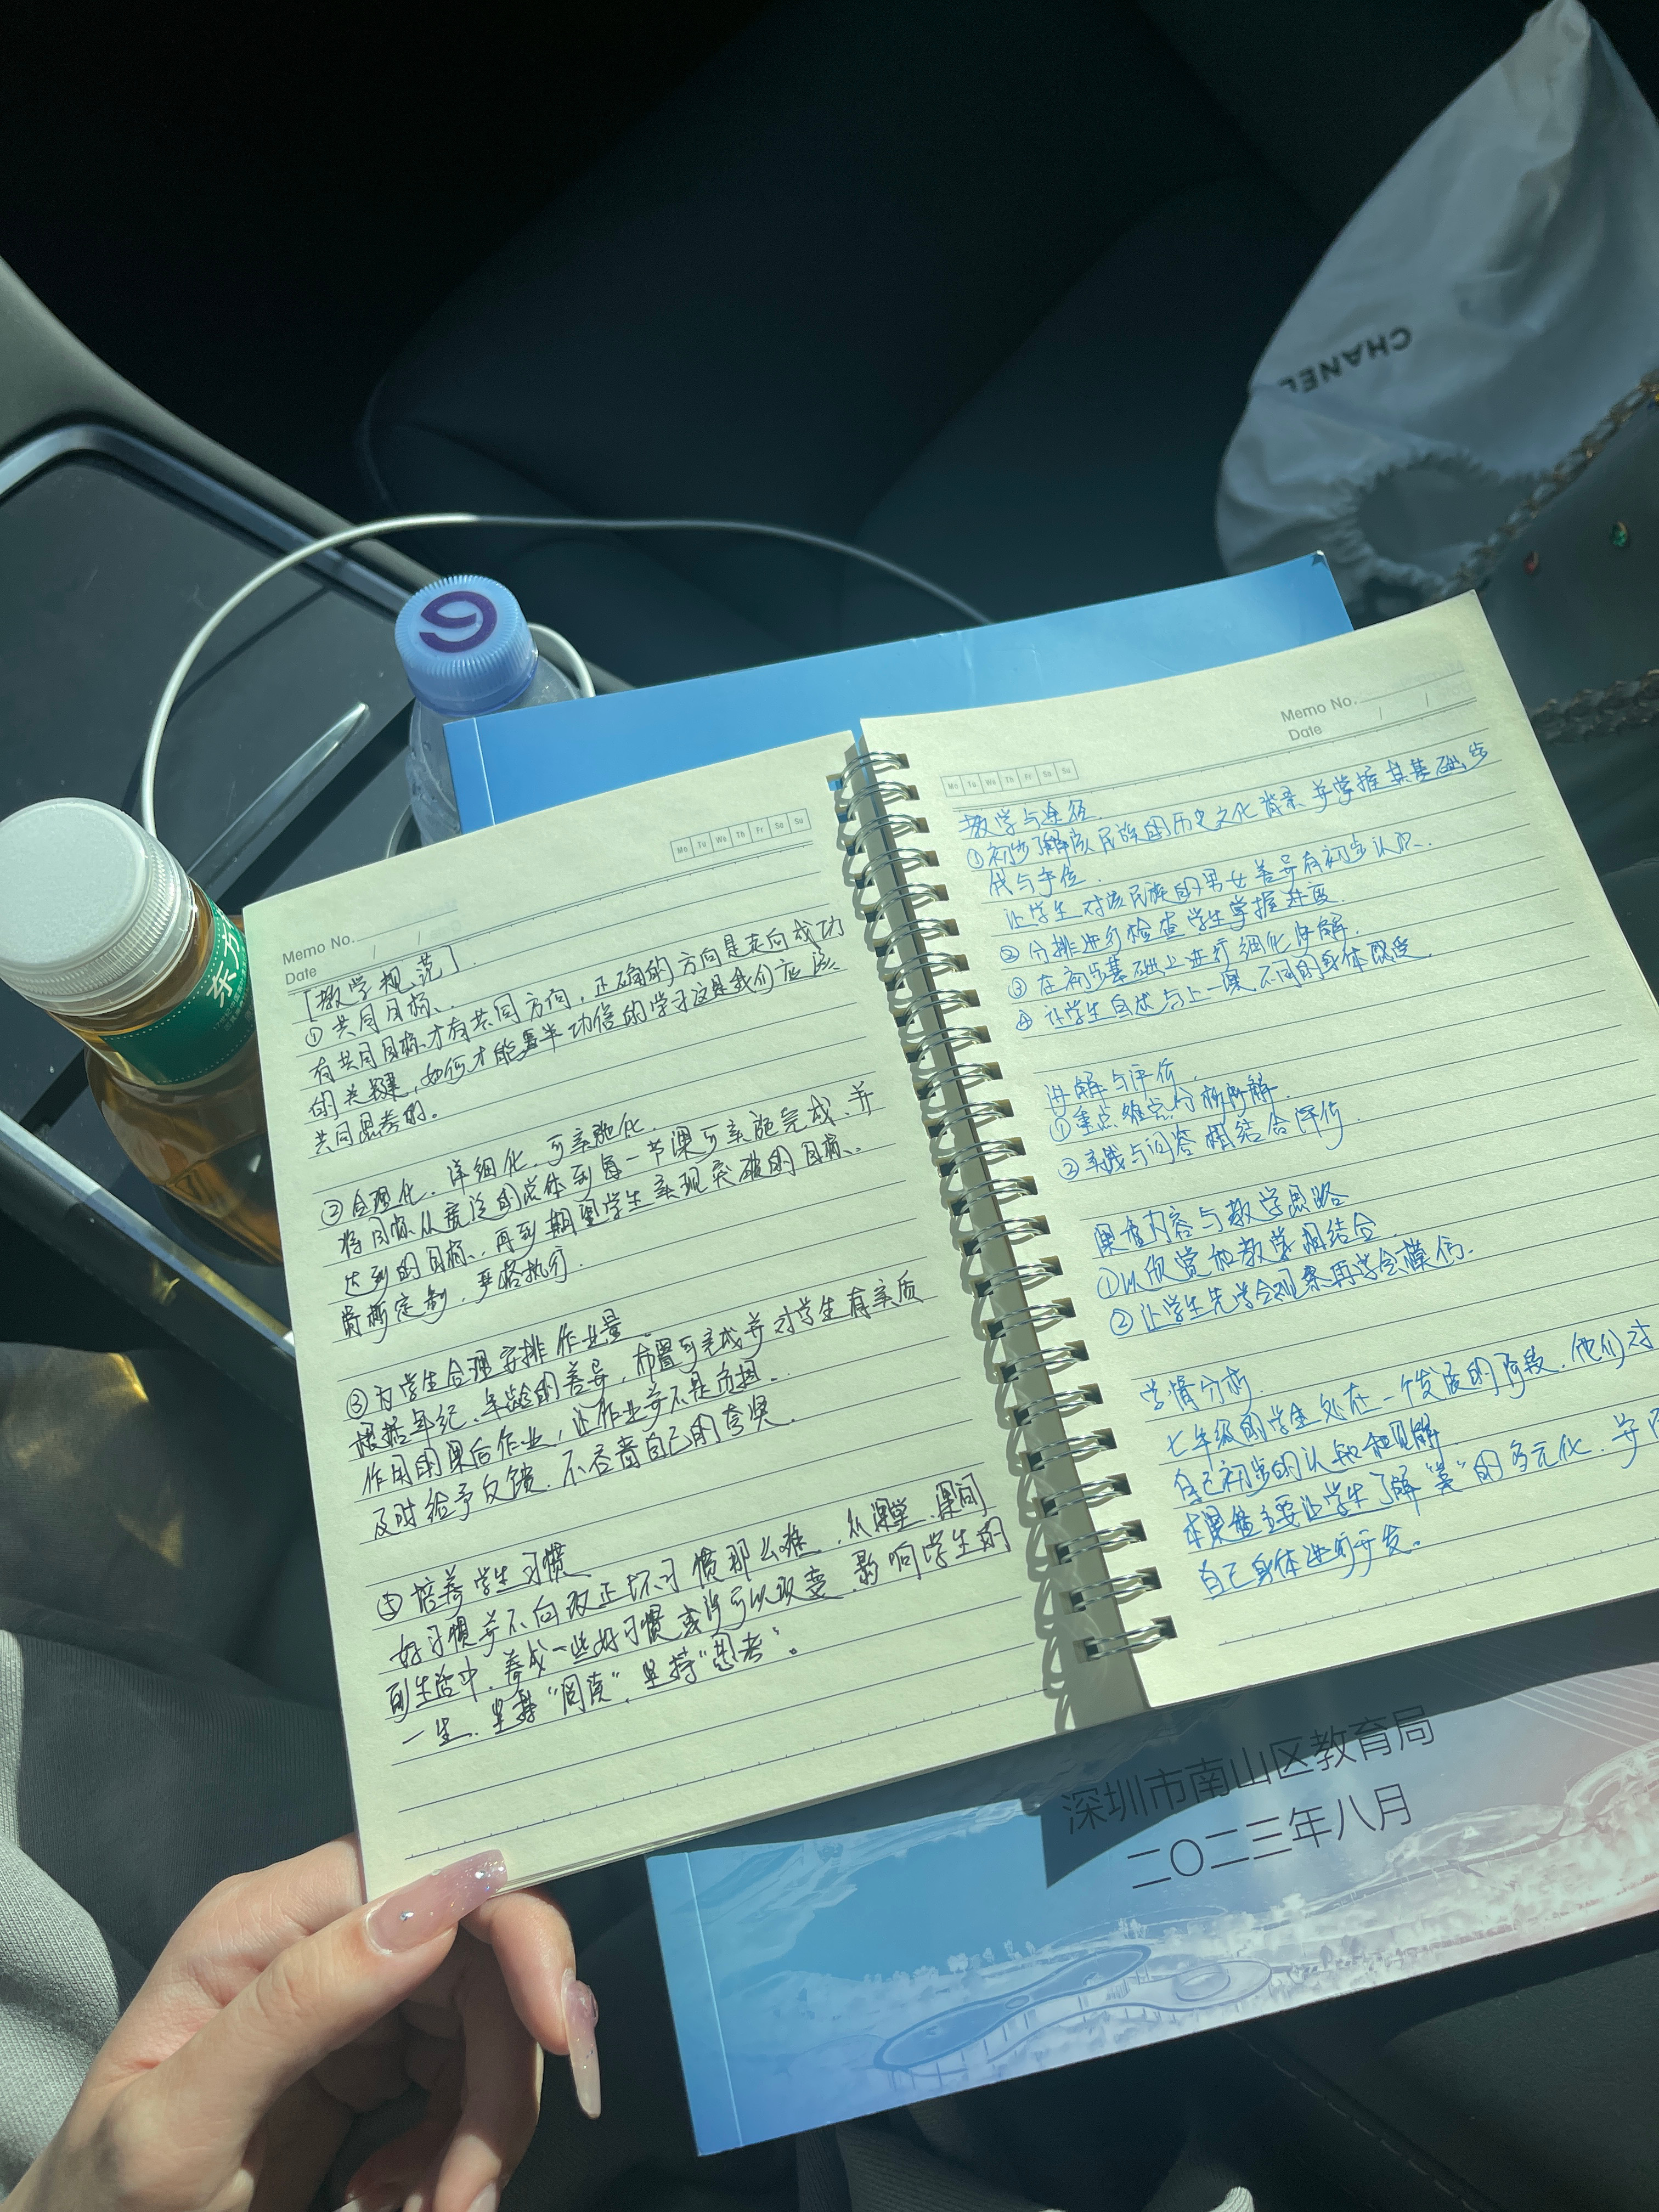 CHANEL
东方
Memo No.
Date / /
Mo Tu We Th Fr Sa Su
[教学规范].
①共同目标.
有共同目标才有共同方向,正确的方向是走向成功
的关键,如何才能事半功倍的学习这是我们应该
共同思考的。
②合理化、详细化、可实施化.
将目标从宽泛的总体到每一节课可实施完成、并
达到的目标、再到期望学生实现突破的目标、
贵所定制、严格执行.
③为学生合理安排作业量.
根据年纪、年龄的差异,布置可完成并对学生有实质
作用的课后作业,让作业并不是负担.
及时给予反馈.不吝啬自己的夸奖.
④培养学生习惯
好习惯并不向改正坏习惯那么难,从课堂、课间
到生活中,养成一些好习惯或许可以改变、影响学生的
一生、坚持“阅读”、坚持“思考”。
Memo No.
Date / /
Mo Tu We Th Fr Sa Su
教学与途径
①初步了解该民族的历史文化背景、并掌握其基础步
伐与手位.
让学生对该民族的男女差异有初步认识.
②分排进行检查学生掌握进度.
③在初步基础上进行细化讲解.
④让学生自述与上一课不同的身体感受.
讲解与评价.
①重点难点分析所解.
②实践与问答相结合评价.
课堂内容与教学思路
①以欣赏和教学相结合.
②让学生先学会观察再学会模仿.
学情分析.
七年级的学生处在一个发展的阶段,他们对
自己初步的认知和见解
本课堂主要让学生了解“美”的多元化,并
自己身体进行开发。
深圳市南山区教育局
二〇二三年八月